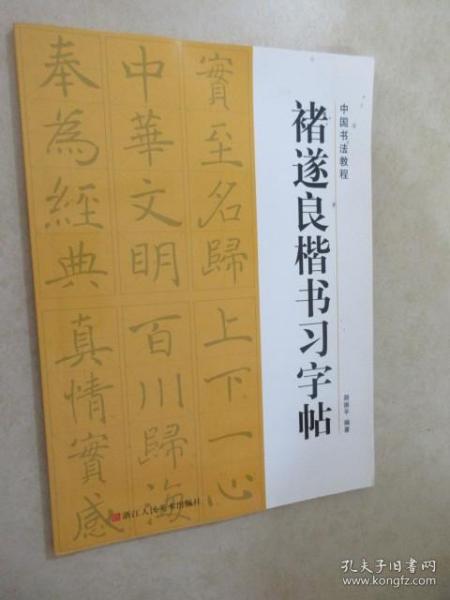 中国书法教程
褚遂良楷书习字帖
编著
實至名歸上下一心
中華文明百川歸海
奉為經典真情實感
浙江人民美术出版社
孔夫子旧书网
www.kongfz.com